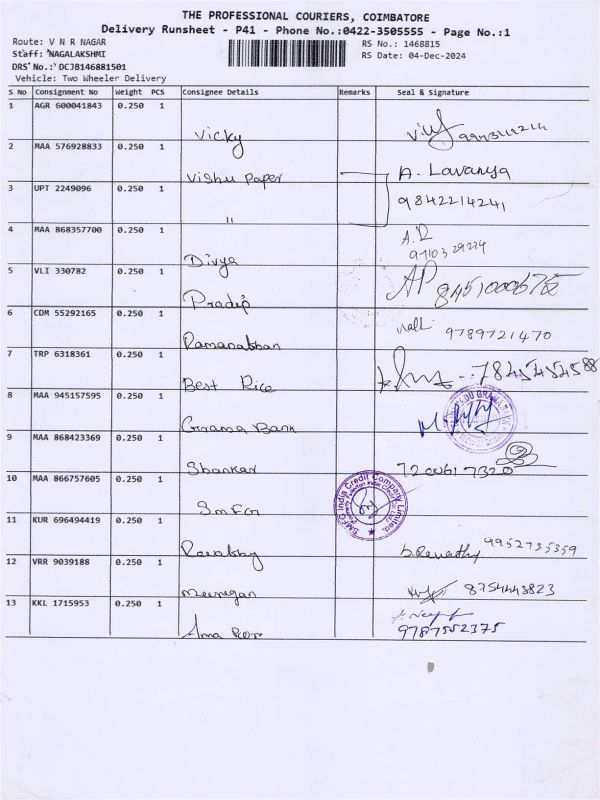 THE PROFESSIONAL COURIERS, COIMBATORE
Delivery Runsheet - P41 - Phone No.:0422-3505555 - Page No.:1
Route: V N R NAGAR
RS No.: 1468815
Staff: NAGALAKSHMI
RS Date: 04-Dec-2024
DRS No.: DCJB146881501
Vehicle: Two Wheeler Delivery
S No Consignment No Weight PCS Consignee Details Remarks Seal & Signature
1 AGR 600041843 0.250 1
Vicky
2 MAA 576928833 0.250 1
Vishu Paper A. Lavanya
3 UPT 2249096 0.250 1 9842214241
"
4 MAA 868357700 0.250 1
Divya
5 VLI 330782 0.250 1 AP
Pradip
6 CDM 55292165 0.250 1
9789721470
7 TRP 6318361 0.250 1
Best Rice 7845454588
8 MAA 945157595 0.250 1
Grama Bank
9 MAA 868423369 0.250 1
Shankar
10 MAA 866757605 0.250 1
SMFG India Credit Company Limited
11 KUR 696494419 0.250 1
b. Revathy 9952735359
12 VRR 9039188 0.250 1
8754443823
13 KKL 1715953 0.250 1
9787552375